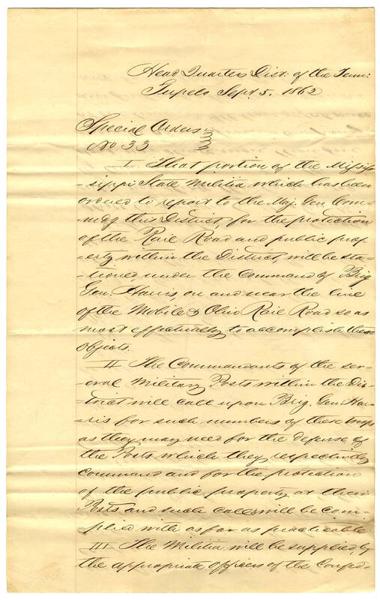 Head Quarters Dist. of the Tenn:
Tupelo Sept. 5. 1862
Special Orders
No 33
I. That portion of the Missis-
sippi State Militia which has been
ordered to report to the Maj. Gen. Com-
mdg this District, for the protection
of the Rail Road and public prop-
erty within the District, will be sta-
tioned under the Command of Brig
Gen. Harris on and near the line
of the Mobile & Ohio Rail Road so as
most effectually to accomplish these
Objects.
II The Commandants of the sev-
eral Military Posts within the Dis-
trict will call upon Brig. Gen Har-
ris for such numbers of these troops
as they may need for the defense of
the Posts which they respectively
command and for the protection
of the public property at their
Posts and such calls will be com-
plied with as far as practicable
III The Militia will be supplied by
the appropriate Officers of the Confed-